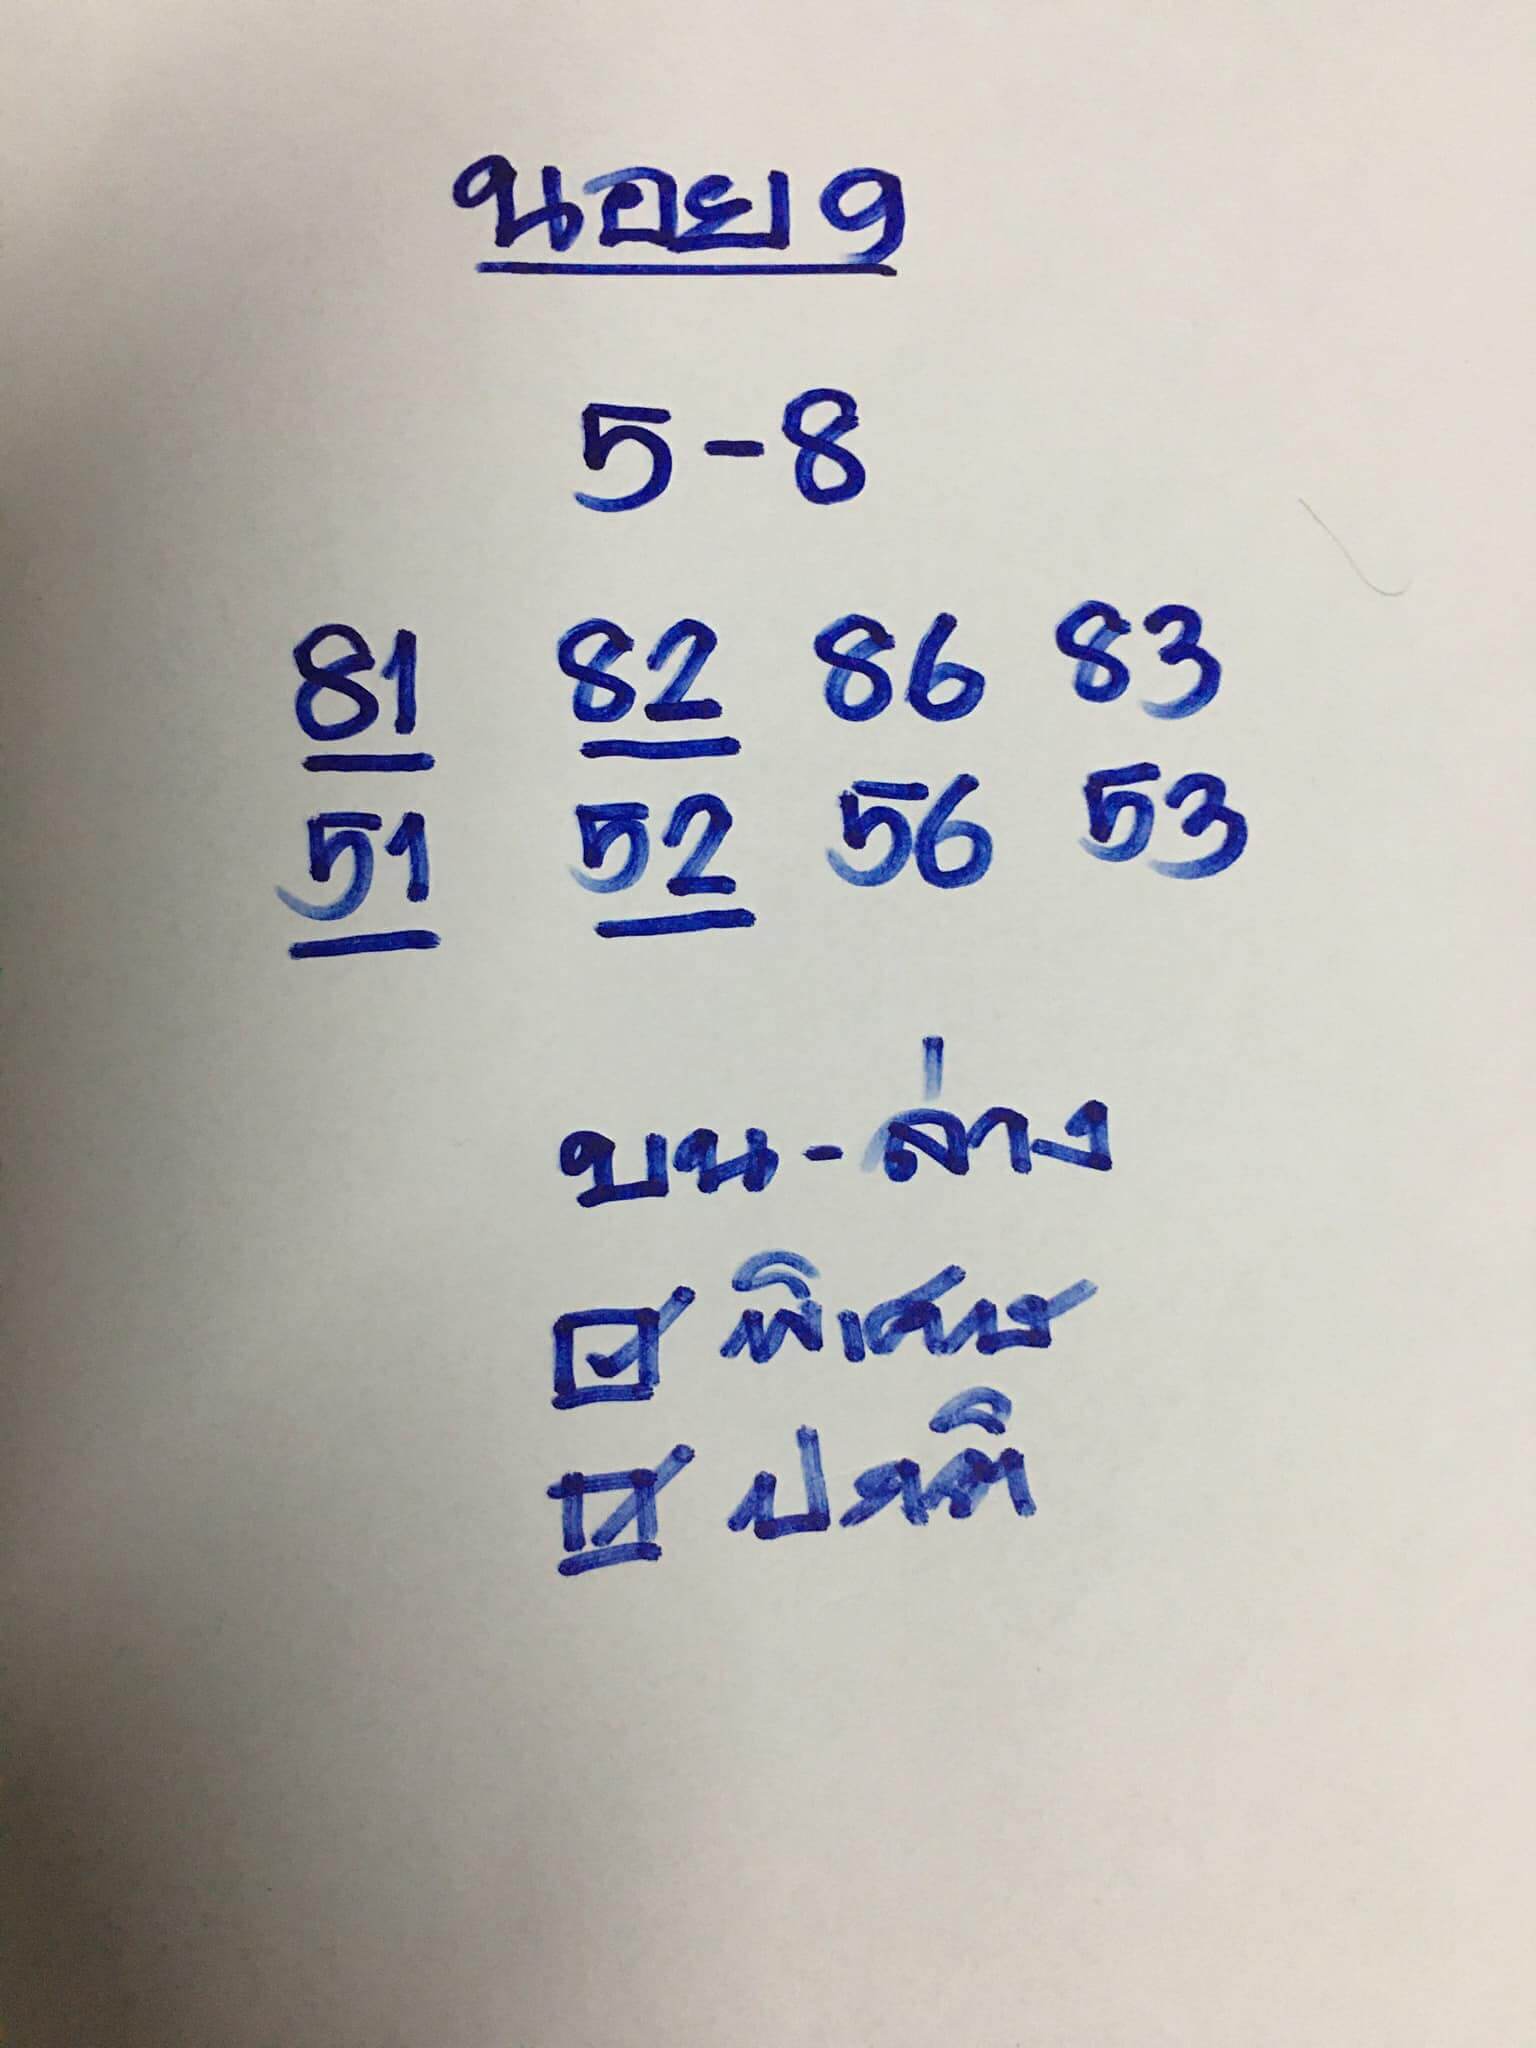 ฮานอย 9
5-8
81 82 86 83
51 52 56 53
บน-ล่าง
☑ พิเศษ
☑ ปกติ